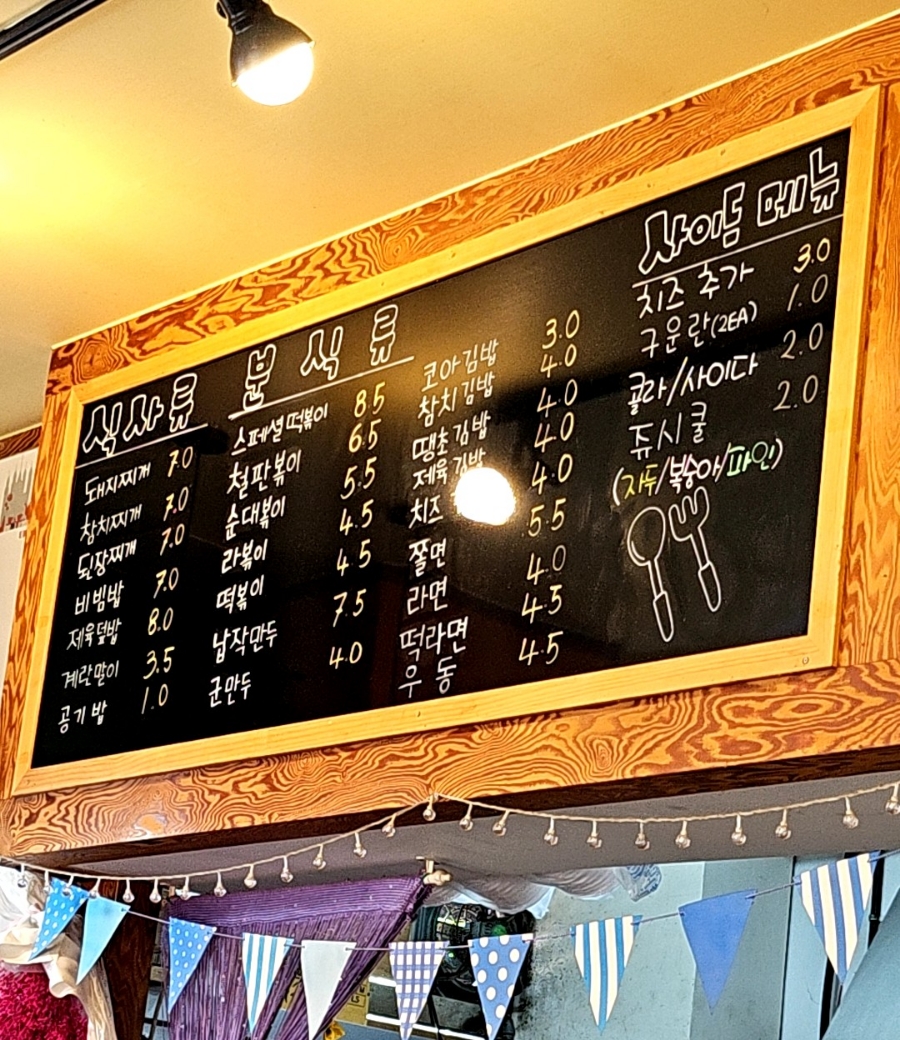 식사류
돼지찌개 7.0
참치찌개 7.0
된장찌개 7.0
비빔밥 7.0
제육덮밥 8.0
계란말이 3.5
공기밥 1.0
분식류
스페셜떡볶이 8.5
철판볶이 6.5
순대볶이 5.5
라볶이 4.5
떡볶이 4.5
납작만두 7.5
군만두 4.0
꼬아김밥 3.0
참치김밥 4.0
땡초김밥 4.0
제육김밥 4.0
치즈 4.0
쫄면 5.5
라면 4.0
떡라면 4.5
우동 4.5
사이드 메뉴
치즈 추가 3.0
구운란(2EA) 1.0
콜라/사이다 2.0
쥬시쿨 2.0
(자두/복숭아/파인)